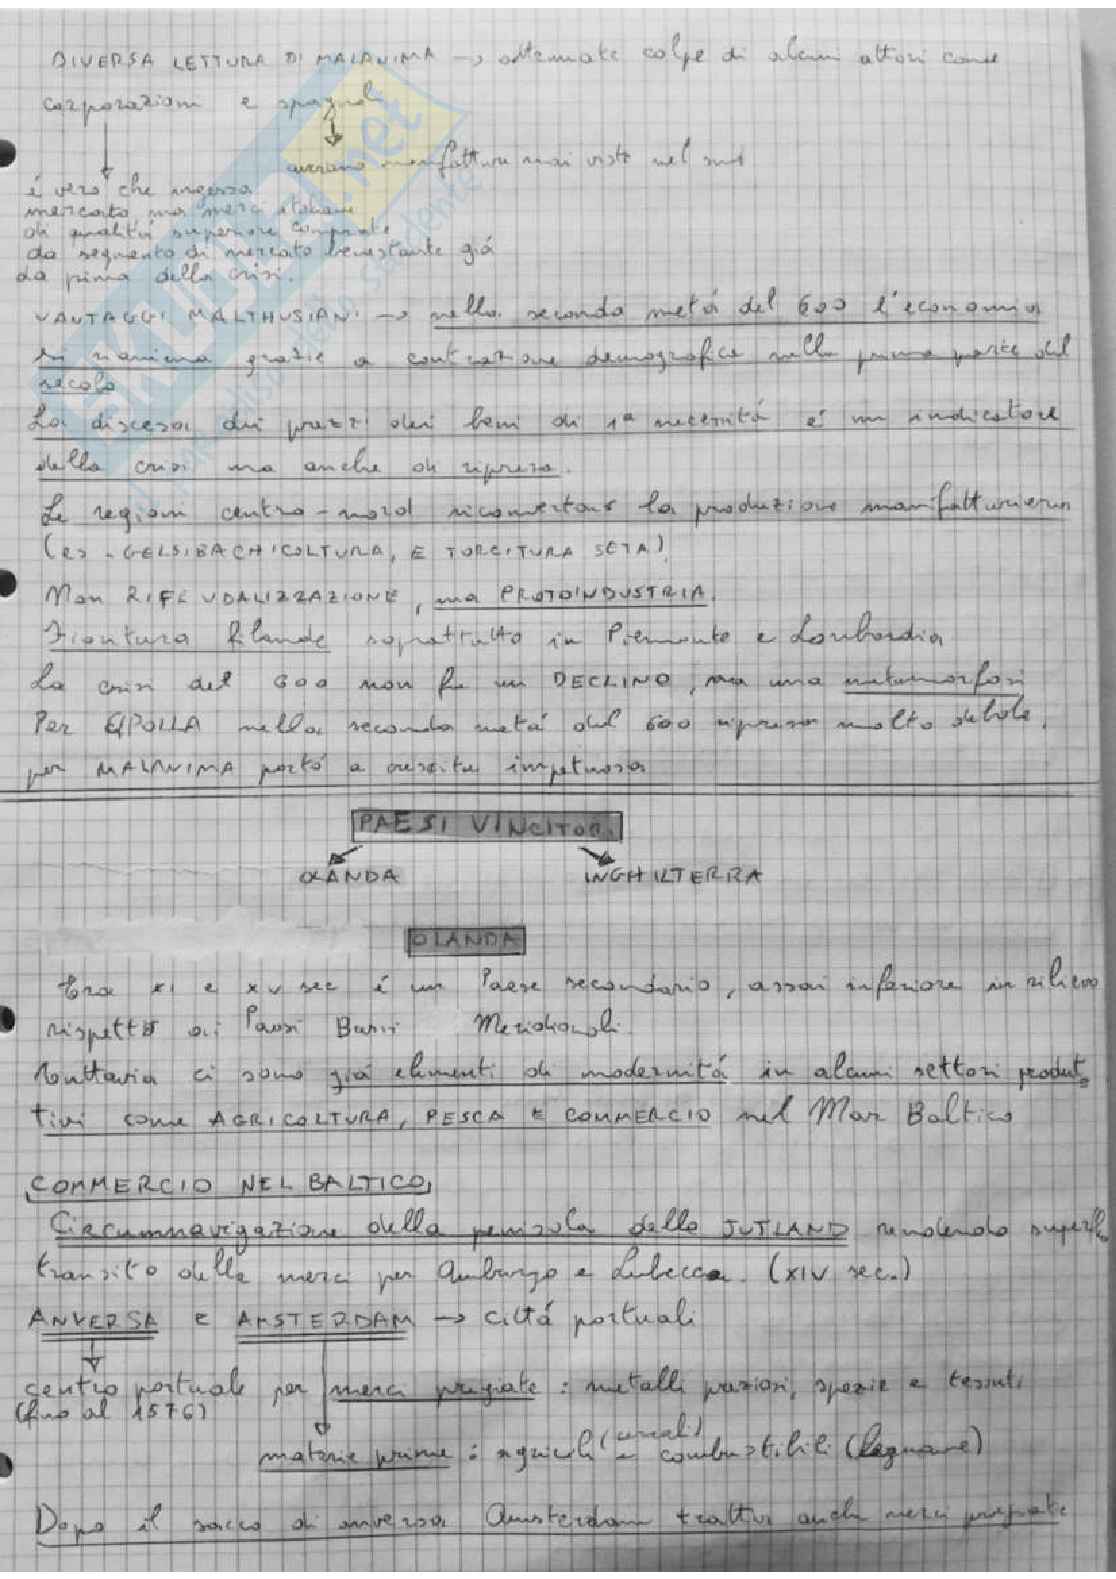 DIVERSA LETTURA DI MALANIMA → attenuate colpe di alcuni attori come
corporazioni e spagnoli
avevano manifatture mai viste nel sud
è vero che ingessa
mercato, ma merci italiane
di qualità superiore comprate
da segmento di mercato benestante già
da prima della crisi.
VANTAGGI MALTHUSIANI → nella seconda metà del 600 l'economia
si rianima grazie a contrazione demografica nella prima parte del
secolo
La discesa dei prezzi dei beni di 1ª necessità è un indicatore
della crisi ma anche di ripresa.
Le regioni centro-nord riconvertono la produzione manifatturiera
(es. GELSIBACHICOLTURA, E TORCITURA SETA)
Non RIFEUDALIZZAZIONE, ma PROTOINDUSTRIA.
Fioritura filande soprattutto in Piemonte e Lombardia
La crisi del 600 non fu un DECLINO, ma una metamorfosi
Per CIPOLLA nella seconda metà del 600 ripresa molto debole,
per MALANIMA portò a crescita impetuosa
PAESI VINCITORI
OLANDA INGHILTERRA
OLANDA
Tra XI e XV sec è un Paese secondario, assai inferiore in rilievo
rispetto ai Paesi Bassi Meridionali
Tuttavia ci sono già elementi di modernità in alcuni settori produt
tivi come AGRICOLTURA, PESCA E COMMERCIO nel Mar Baltico
COMMERCIO NEL BALTICO
Circumnavigazione della penisola dello JUTLAND rendendo superfluo
transito delle merci per Amburgo e Lubecca. (XIV sec.)
ANVERSA E AMSTERDAM → città portuali
centro portuale per merci pregiate: metalli preziosi, spezie e tessuti
(fino al 1576)
materie prime: agricoli (cereali) e combustibili (legname)
Dopo il sacco di anversa Amsterdam trattò anche merci pregiate